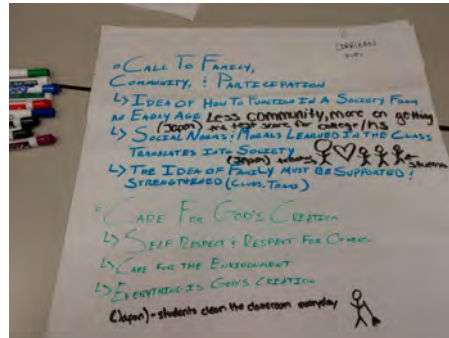 o CALL TO FAMILY,
COMMUNITY, & PARTICIPATION
↳ IDEA OF HOW TO FUNCTION IN A SOCIETY FROM
AN EARLY AGE Less community, more on getting
(Japan) the test score for college/HS
↳ SOCIAL NORMS & MORALS LEARNED IN THE CLASS
TRANSLATES INTO SOCIETY
(Japan) students
↳ THE IDEA OF FAMILY MUST BE SUPPORTED &
STRENGTHENED (CLUBS, TEAMS)
CARE FOR GOD'S CREATION
↳ SELF RESPECT & RESPECT FOR OTHERS
↳ CARE FOR THE ENVIRONMENT
↳ EVERYTHING IS GOD'S CREATION
(Japan) - students clean the classroom everyday